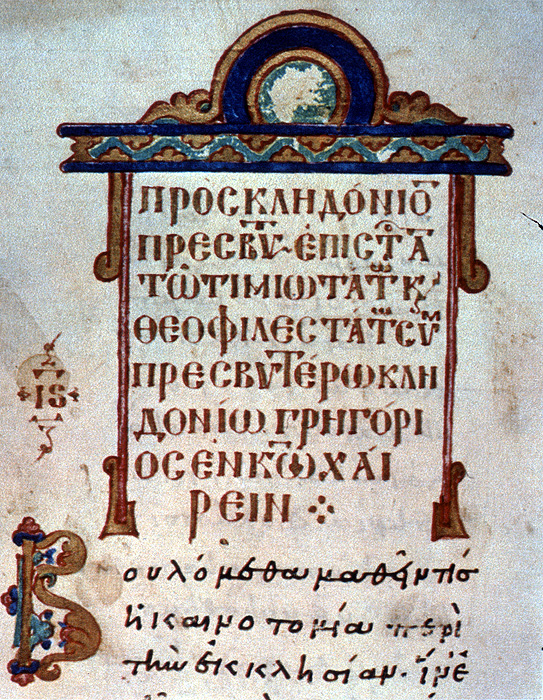 ΠΡὸC ΚΛΗΔόΝΙΟ̅
ΠΡΕCΒΥ̅· ἘΠΙCΤ̅Α
Τῶ ΤΙΜΙωΤάΤ κ̀
ΘΕΟΦΙΛΕCΤάΤ CΥΜ
ΠΡΕCΒΥΤέΡω ΚΛΗ
ΔΟΝίω ΓΡΗΓόΡΙ
ΟC ἐΝ Κ̅ω̅ ΧΑί
ΡΕΙΝ
ΙϚ
Βουλόμεθα μαθεῖν τίσ
ἡ καινοτομία περὶ
τὴν ἐκκλησίαν·